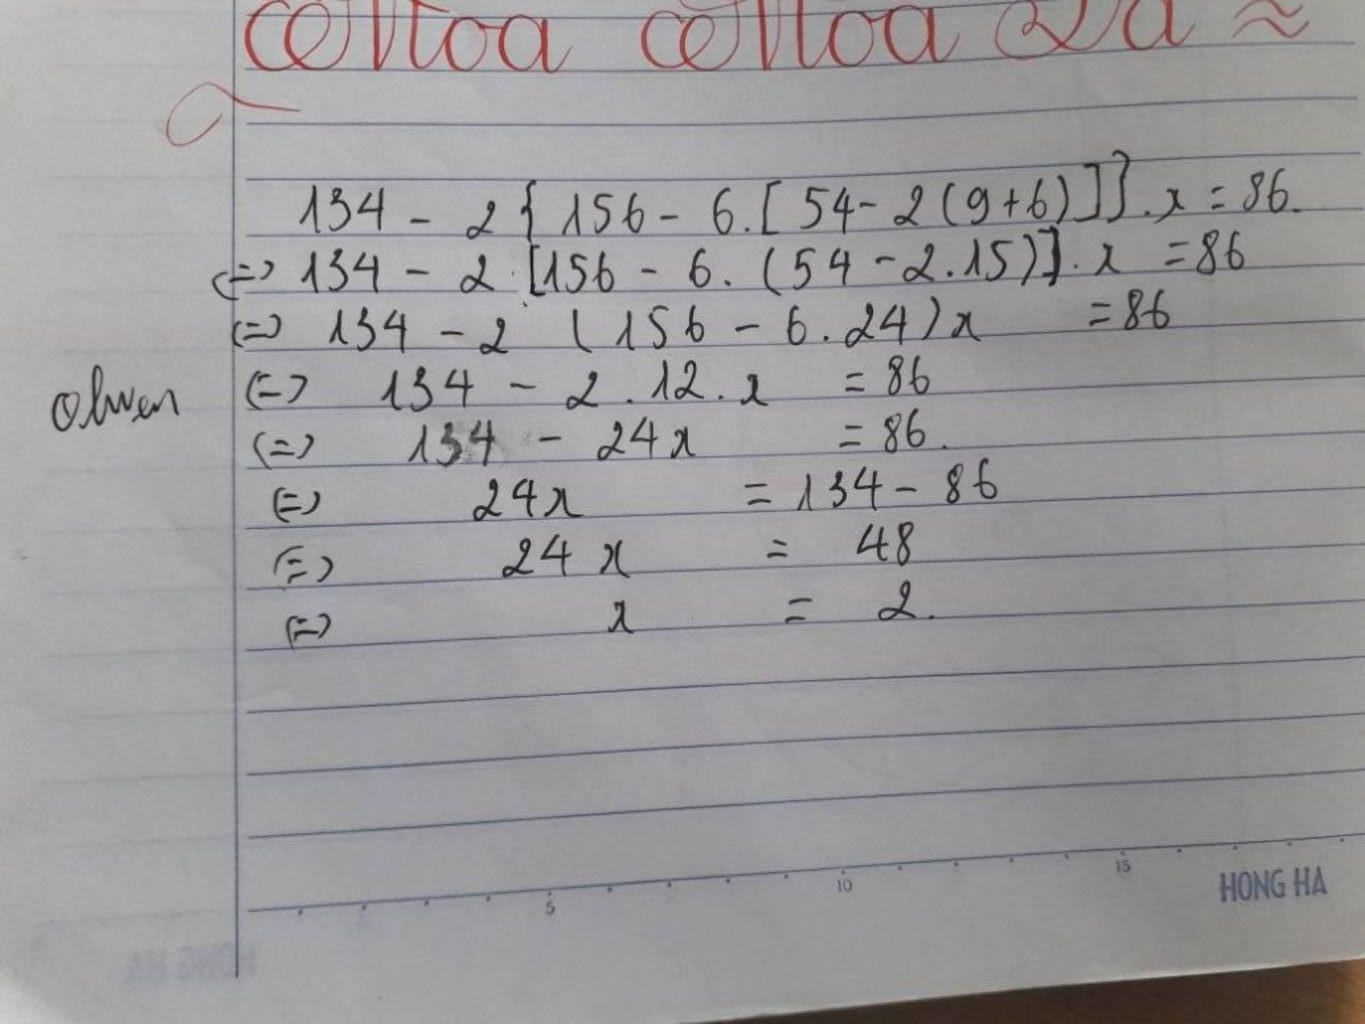 134 - 2 { 156 - 6.[ 54 - 2 (9+6) ]}.x = 86.
(=) 134 - 2.[156 - 6. (54 - 2.15)].x = 86
(=) 134 - 2 (156 - 6.24)x = 86
Olwen (=) 134 - 2.12.x = 86
(=) 134 - 24x = 86.
(=) 24x = 134 - 86
(=) 24x = 48
(=) x = 2.
5 10 15
HONG HA
HONG HA